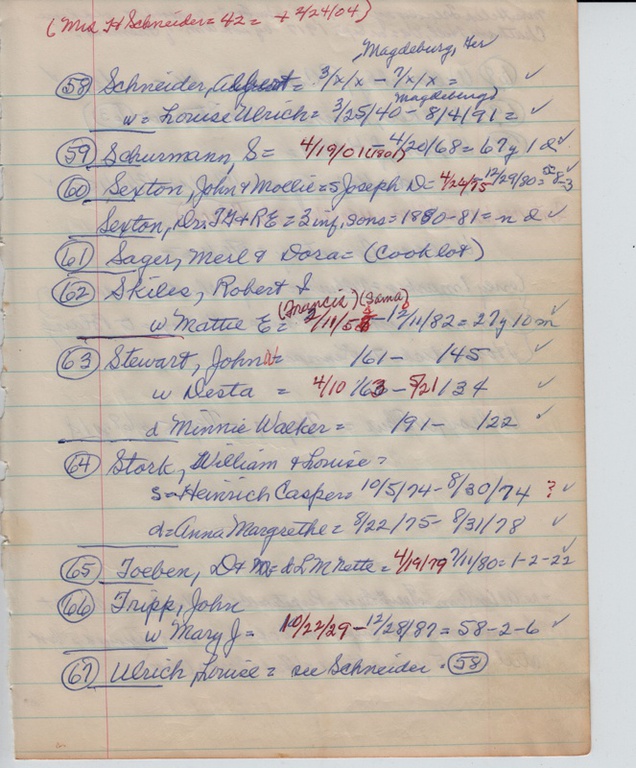 (Mrs H Schneider = 42 = + 2/24/04)
Magdeburg, Ger
(58) Schneider, = 3/x/x - 7/x/x = ✓
Magdeburg
w = Louise Ulrich = 3/25/40 - 8/4/91 = ✓
(59) Schurmann, S = 4/19/01 (1901) - 4/20/68 = 67y 1d ✓
(60) Sexton, John + Mollie = s Joseph D = 4/24/75 - 12/29/80 = 5-8-3 ✓
Sexton, Dr. T + R E = 3 inf. sons = 1880-81 = n d ✓
(61) Sager, Merl & Dora = (Cook lot)
(62) Skiles, Robert
(Francis) (Sama)
w Mattie E = 2/11/55 - 12/11/82 = 27y 10m
(63) Stewart, John W = /61 - /45 ✓
w Desta = 4/10/63 - 5/21/34 ✓
d Minnie Walker = /91 - /22 ✓
(64) Stork, William & Louise =
s = Heinrich Casper = 10/5/74 - 8/30/74 ? ✓
d = Anna Margrethe = 8/22/75 - 8/31/78 ✓
(65) Toeben, D + M = d L M Nette = 4/19/79 7/11/80 = 1-2-22 ✓
(66) Tripp, John
w Mary J = 10/22/29 - 12/28/87 = 58-2-6 ✓
(67) Ulrich, Louise = see Schneider - (58)